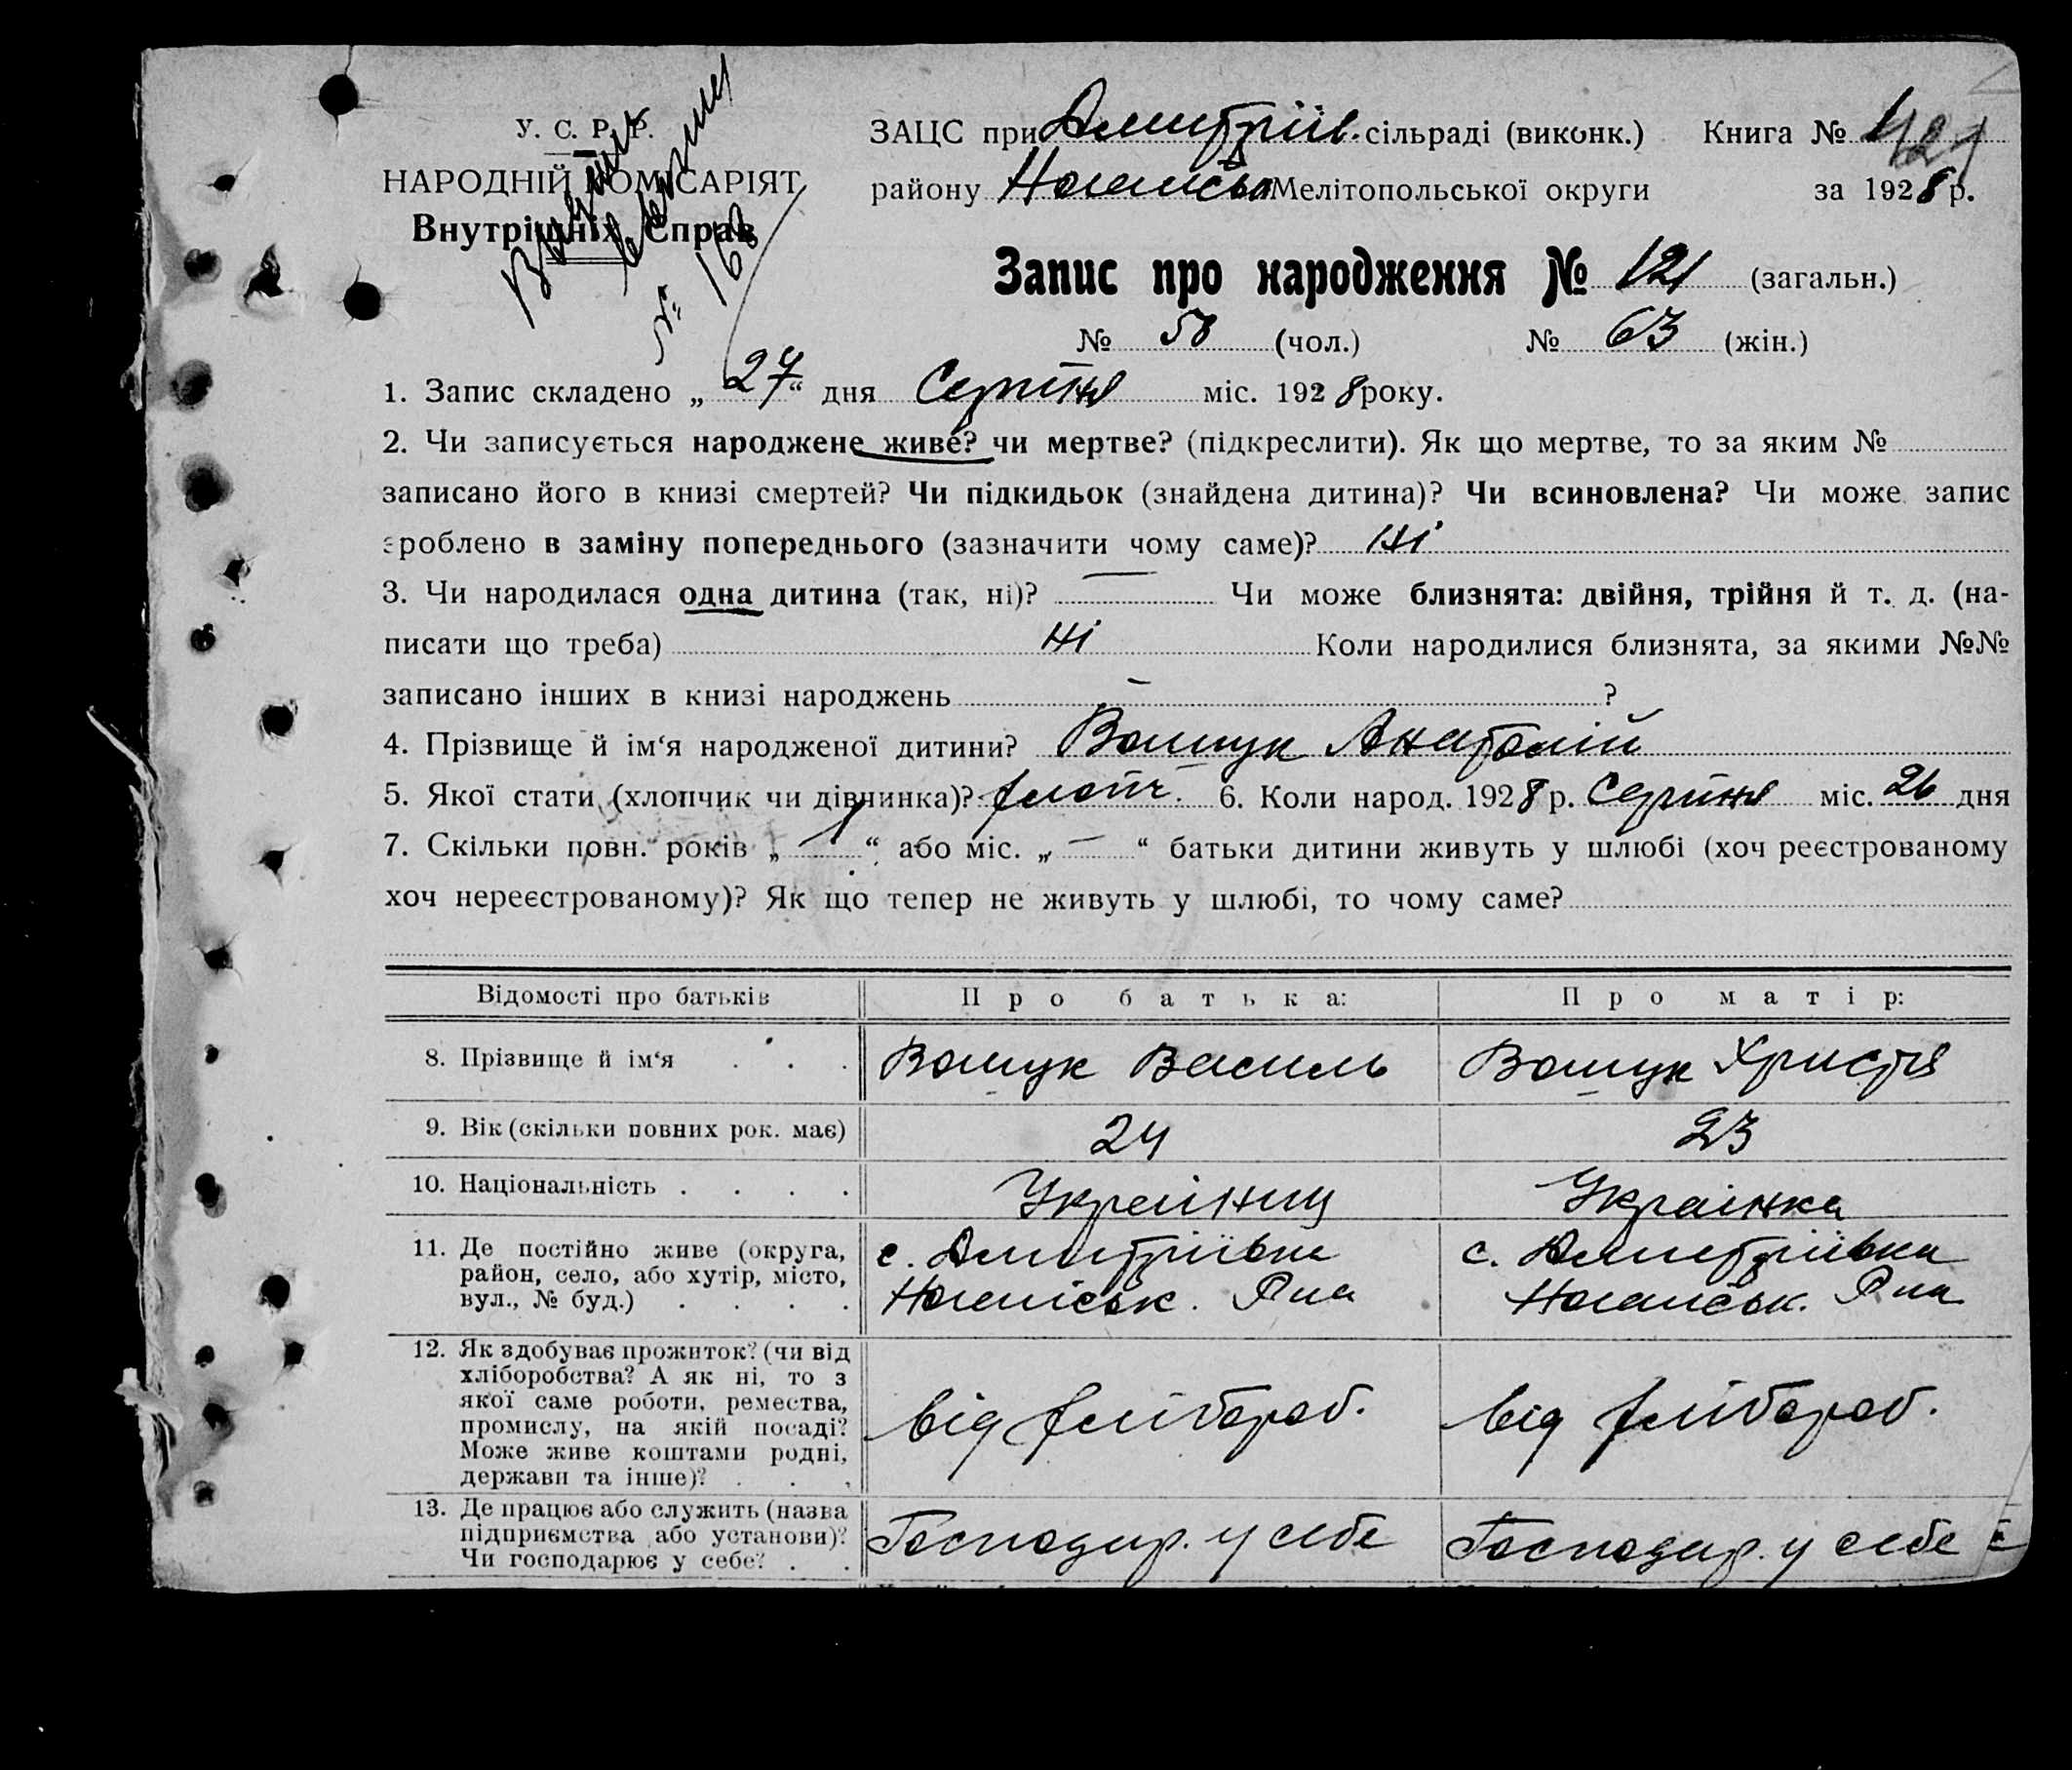 У. С. Р. Р.
НАРОДНІЙ КОМІСАРІЯТ
Внутрішніх Справ
№ 168
ЗАЦС при Дмитріїв. сільраді (виконк.) Книга № 1
району Ногайськ Мелітопольської округи за 1928 р.
Запис про народження № 121 (загальн.)
№ 58 (чол.) № 63 (жін.)
1. Запис складено „27“ дня Серпня міс. 1928 року.
2. Чи записується народжене живе? чи мертве? (підкреслити). Як що мертве, то за яким №
записано його в книзі смертей? Чи підкидьок (знайдена дитина)? Чи всиновлена? Чи може запис
зроблено в заміну попереднього (зазначити чому саме)? ні
3. Чи народилася одна дитина (так, ні)? — Чи може близнята: двійня, трійня й т. д. (на-
писати що треба) ні Коли народилися близнята, за якими №№
записано інших в книзі народжень — ?
4. Прізвище й ім‘я народженої дитини? Ващук Анатолій
5. Якої стати (хлопчик чи дівчинка)? хлопч. 6. Коли народ. 1928 р. Серпня міс. 26 дня
7. Скільки повн. років „1“ або міс. „—“ батьки дитини живуть у шлюбі (хоч реєстрованому
хоч нереєстрованому)? Як що тепер не живуть у шлюбі, то чому саме?
Відомості про батьків Про батька: Про матір:
8. Прізвище й ім‘я . . . Ващук Василь Ващук Христя
9. Вік (скільки повних рок. має) 24 23
10. Національність . . . . Українец Українка
11. Де постійно живе (округа, с. Дмитріївка с. Дмитріївка
район, село, або хутір, місто, Ногайськ. Р-на Ногайськ. Р-на
вул., № буд.) . . . .
12. Як здобуває прожиток? (чи від
хліборобства? А як ні, то з
якої саме роботи, ремества,
промислу, на якій посаді? від хлібороб. від хлібороб.
Може живе коштами родні,
держави та інше)? . . .
13. Де працює або служить (назва
підприємства або установи)? Господар. у себе Господар. у себе
Чи господарює у себе? . .